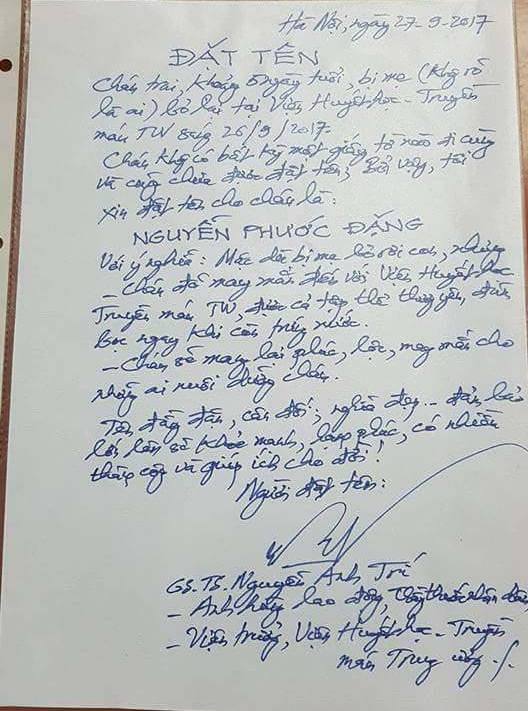 Hà Nội, ngày 27-9-2017
ĐẶT TÊN
Cháu trai, khoảng 5 ngày tuổi, bị mẹ (không rõ
là ai) bỏ lại tại Viện Huyết học - Truyền
máu TW sáng 26/9/2017.
Cháu không có bất kỳ một giấy tờ nào đi cùng
và cũng chưa được đặt tên; Bởi vậy, tôi
xin đặt tên cho cháu là:
NGUYỄN PHƯỚC ĐĂNG
Với ý nghĩa: Mặc dù bị mẹ bỏ rơi con, nhưng
- Cháu đã may mắn đến với Viện Huyết học
Truyền máu TW, được cả tập thể thương yêu, đùm
bọc ngay khi còn trứng nước.
- Cháu sẽ mang lại phúc, lộc, may mắn cho
những ai nuôi dưỡng cháu.
Tên đăng đắn, cân đối; nghĩa đẹp... đảm bảo
lớn lên sẽ khỏe mạnh, hạnh phúc, có nhiều
thành công và giúp ích cho đời!
Người đặt tên:
GS.TS. Nguyễn Anh Trí
- Anh hùng lao động, Thầy thuốc nhân dân
- Viện trưởng, Viện Huyết học - Truyền
máu Trung ương ./.